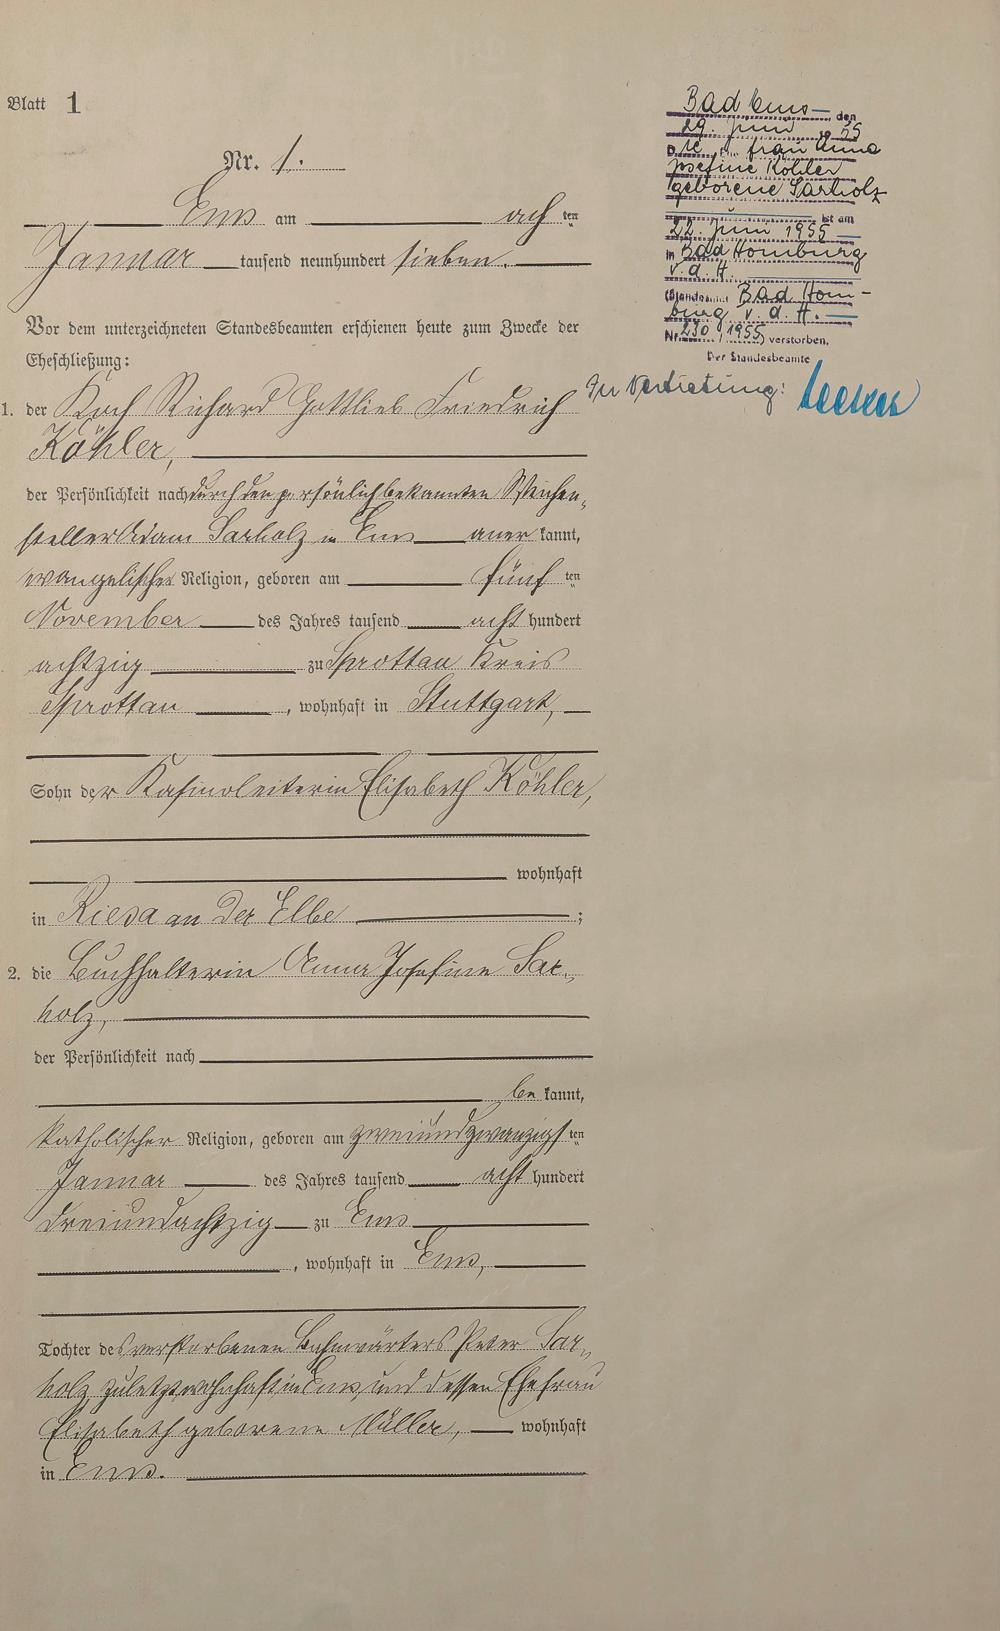 Blatt 1
Nr. 1.
Ems am achten
Januar tausend neunhundert sieben.
Vor dem unterzeichneten Standesbeamten erschienen heute zum Zwecke der
Eheschließung:
1. der Koch Richard Gottlieb Friedrich
Köhler,
der Persönlichkeit nach durch den persönlich bekannten Weichen-
steller Adam Sarholz in Ems anerkannt,
evangelischer Religion, geboren am fünften
November des Jahres tausend achthundert
achtzig zu Sprottau Kreis
Sprottau, wohnhaft in Stuttgart,
Sohn der Kasinoleiterin Elisabeth Köhler,
wohnhaft
in Riesa an der Elbe;
2. die Buchhalterin Anna Josefine Sar-
holz,
der Persönlichkeit nach
bekannt,
katholischer Religion, geboren am zweiundzwanzigsten
Januar des Jahres tausend achthundert
dreiundachtzig zu Ems
, wohnhaft in Ems,
Tochter des verstorbenen Bahnwärters Peter Sar-
holz zuletzt wohnhaft in Ems, und dessen Ehefrau
Elisabeth geborene Müller, wohnhaft
in Ems.
Bad Ems, den
29. Juni 1955
Die Frau Anna
Josefine Köhler
geborene Sarholz
ist am
22. Juni 1955
in Bad Homburg
v. d. H.
(Standesamt Bad Hom-
burg v. d. H.
Nr. 230/1955) verstorben.
Der Standesbeamte
In Vertretung: